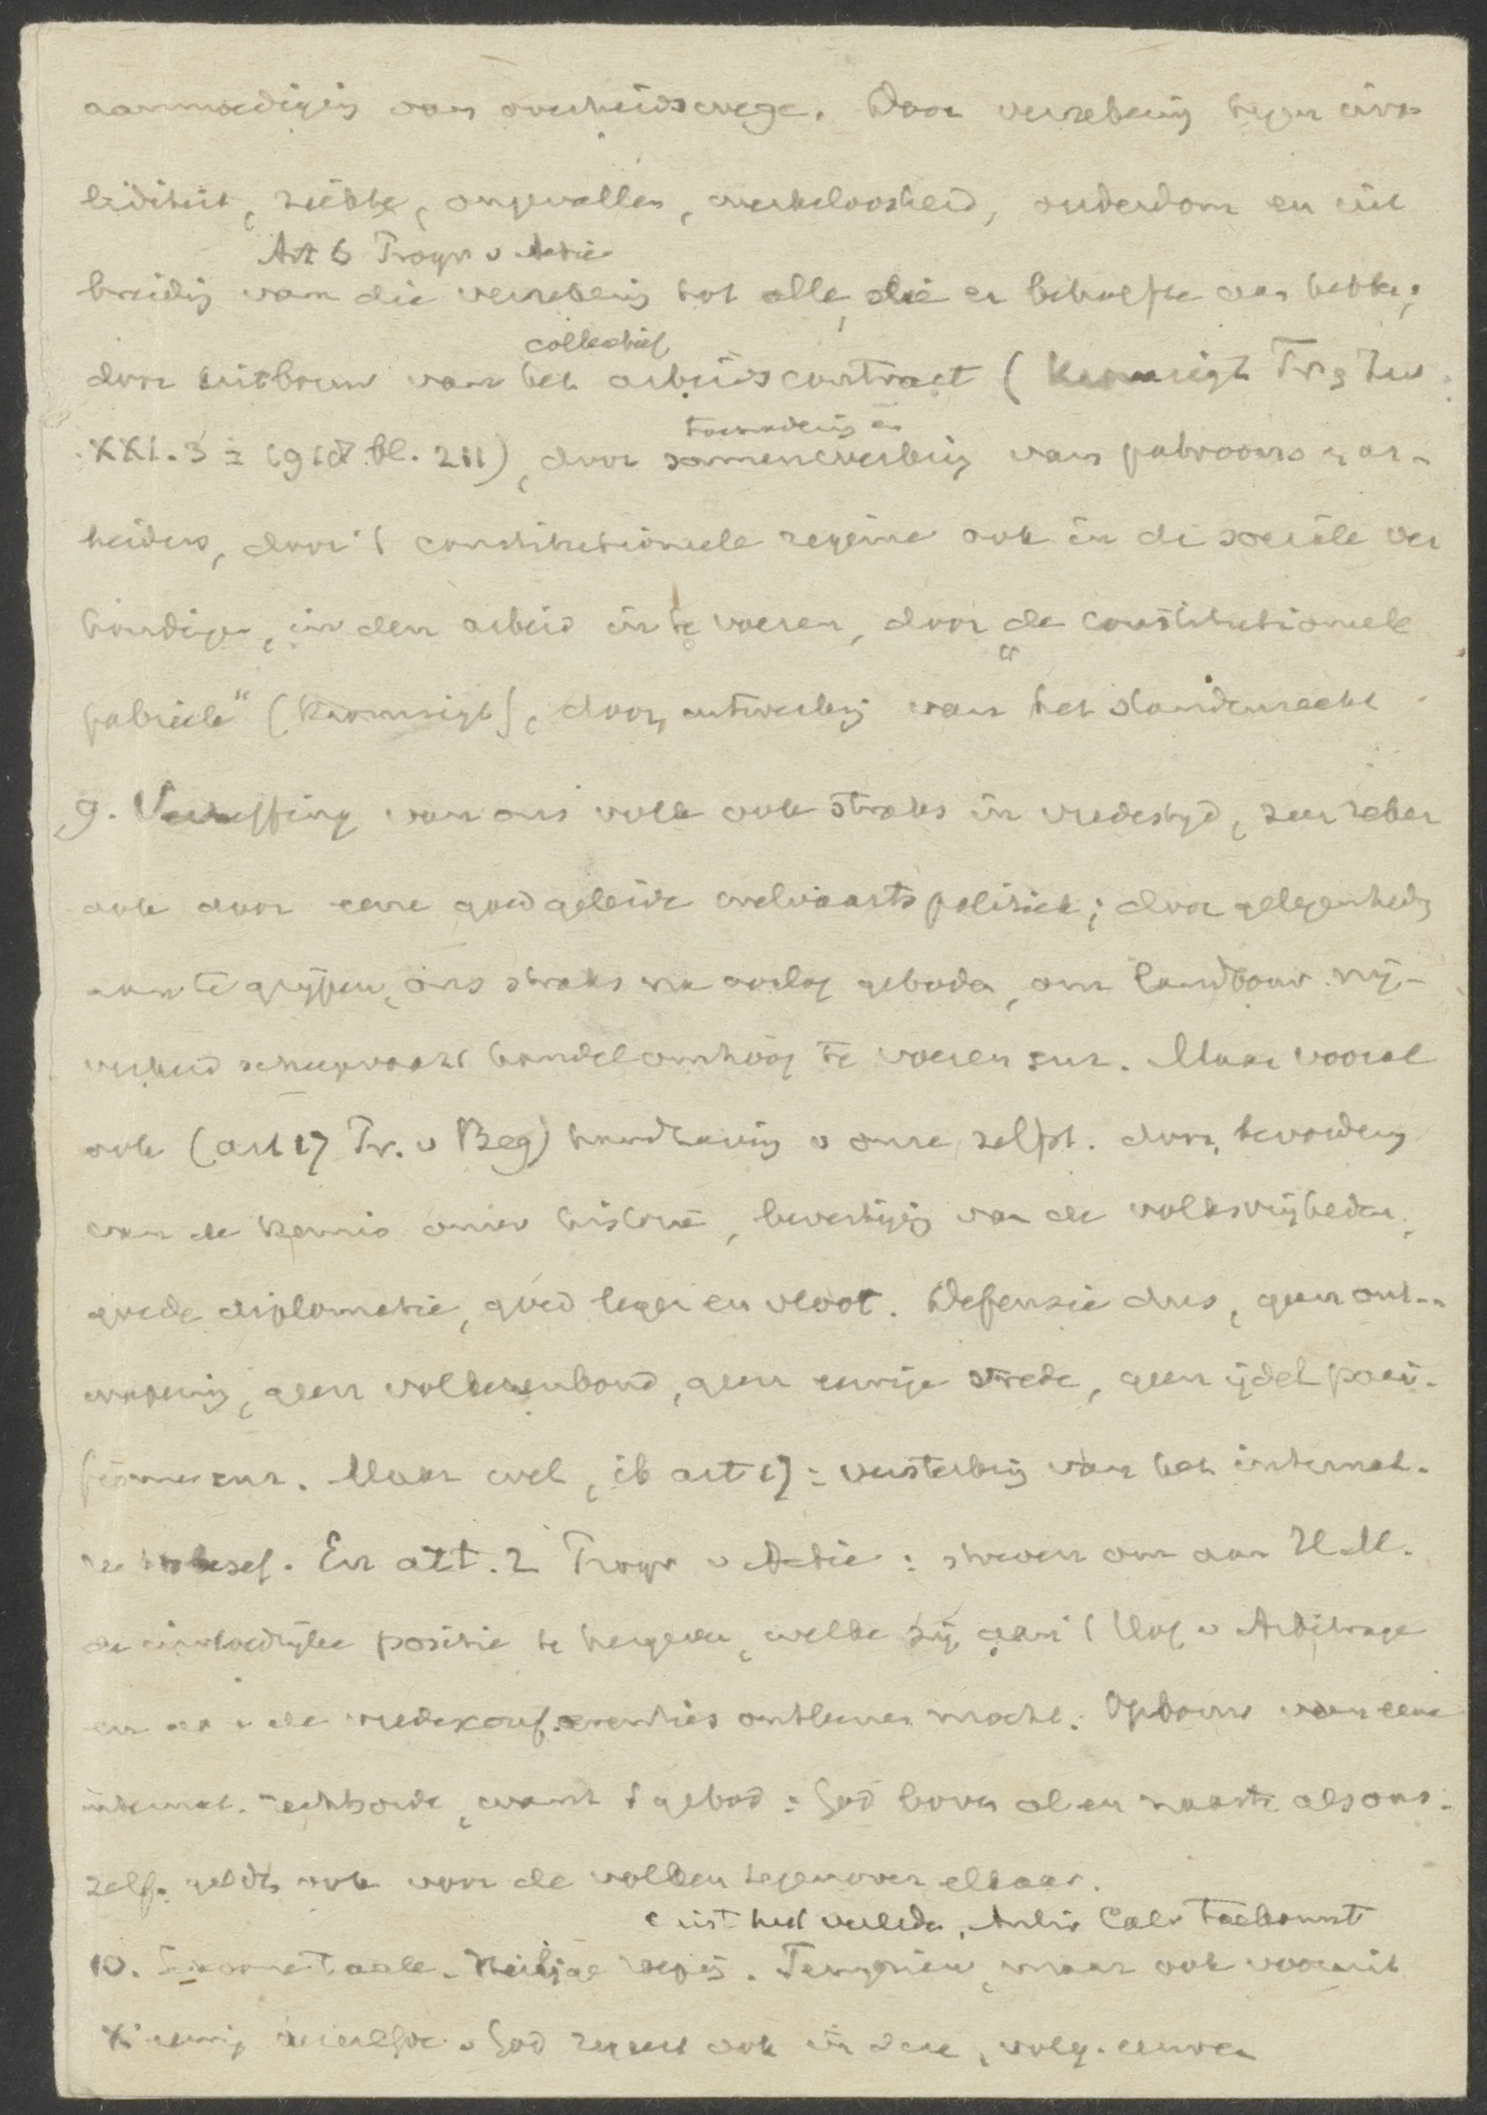 aanmoediging van overheidswege. Door verzekering tegen inva
liditeit, ziekte, ongevallen, werkeloosheid, ouderdom en uit
Art 6 Progr v Actie
breidig van die verzekering tot alle, die er behoefte aan hebben;
collectief
door uitbouw van het arbeidscontract (Kromsigt Tr 3
XXI. 3 = 1918 bl. 211), door samenwerking van patroons en ar-
toenadering en
beiders, door 't constitutioneele regime ook in de sociale ver
houdingen, in den arbeid in te voeren, door "de constitutioneele
fabriek" (Kromsigt), door ontwerking van het standenrecht
9. Verheffing van ons volk ook straks in vredestijd, zeer zeker
ook door eene goed geleide welvaartspolitiek; door gelegenheden
aan te grijpen, ons straks na oorlog geboden, om landbouw nij-
verheid scheepvaart handel omhoog te voeren enz. Maar vooral
ook (art 17 Pr. v Beg) handhaving v onze zelfst. door, bevordering
van de kennis onzer historie, bevestiging van de volksvrijheden,
goede diplomatie, goed leger en vloot. Defensie dus, geen ont-
wapening, geen volkerenbond, geen eeuwige vrede, geen ijdel paci-
fisme enz. Maar wel, ib art 17: versterking van het internat.
rechtsbesef. En art. 2 Progr v Actie: streven om aan H.M.
de invloedrijke positie te hergeven, welke zij aan 't Hof v Arbitrage
en de vredesconferenties ontleenen mocht. Opbouw van eene
internat. rechtsorde, want 't gebod: God boven al en naaste als ons-
zelf. geldt ook voor de volken tegenover elkaar.
uit het verleden, Antir Calv toekomst
10. Terugzien, maar ook vooruit
God regeert ook in deze, volg. eeuwen